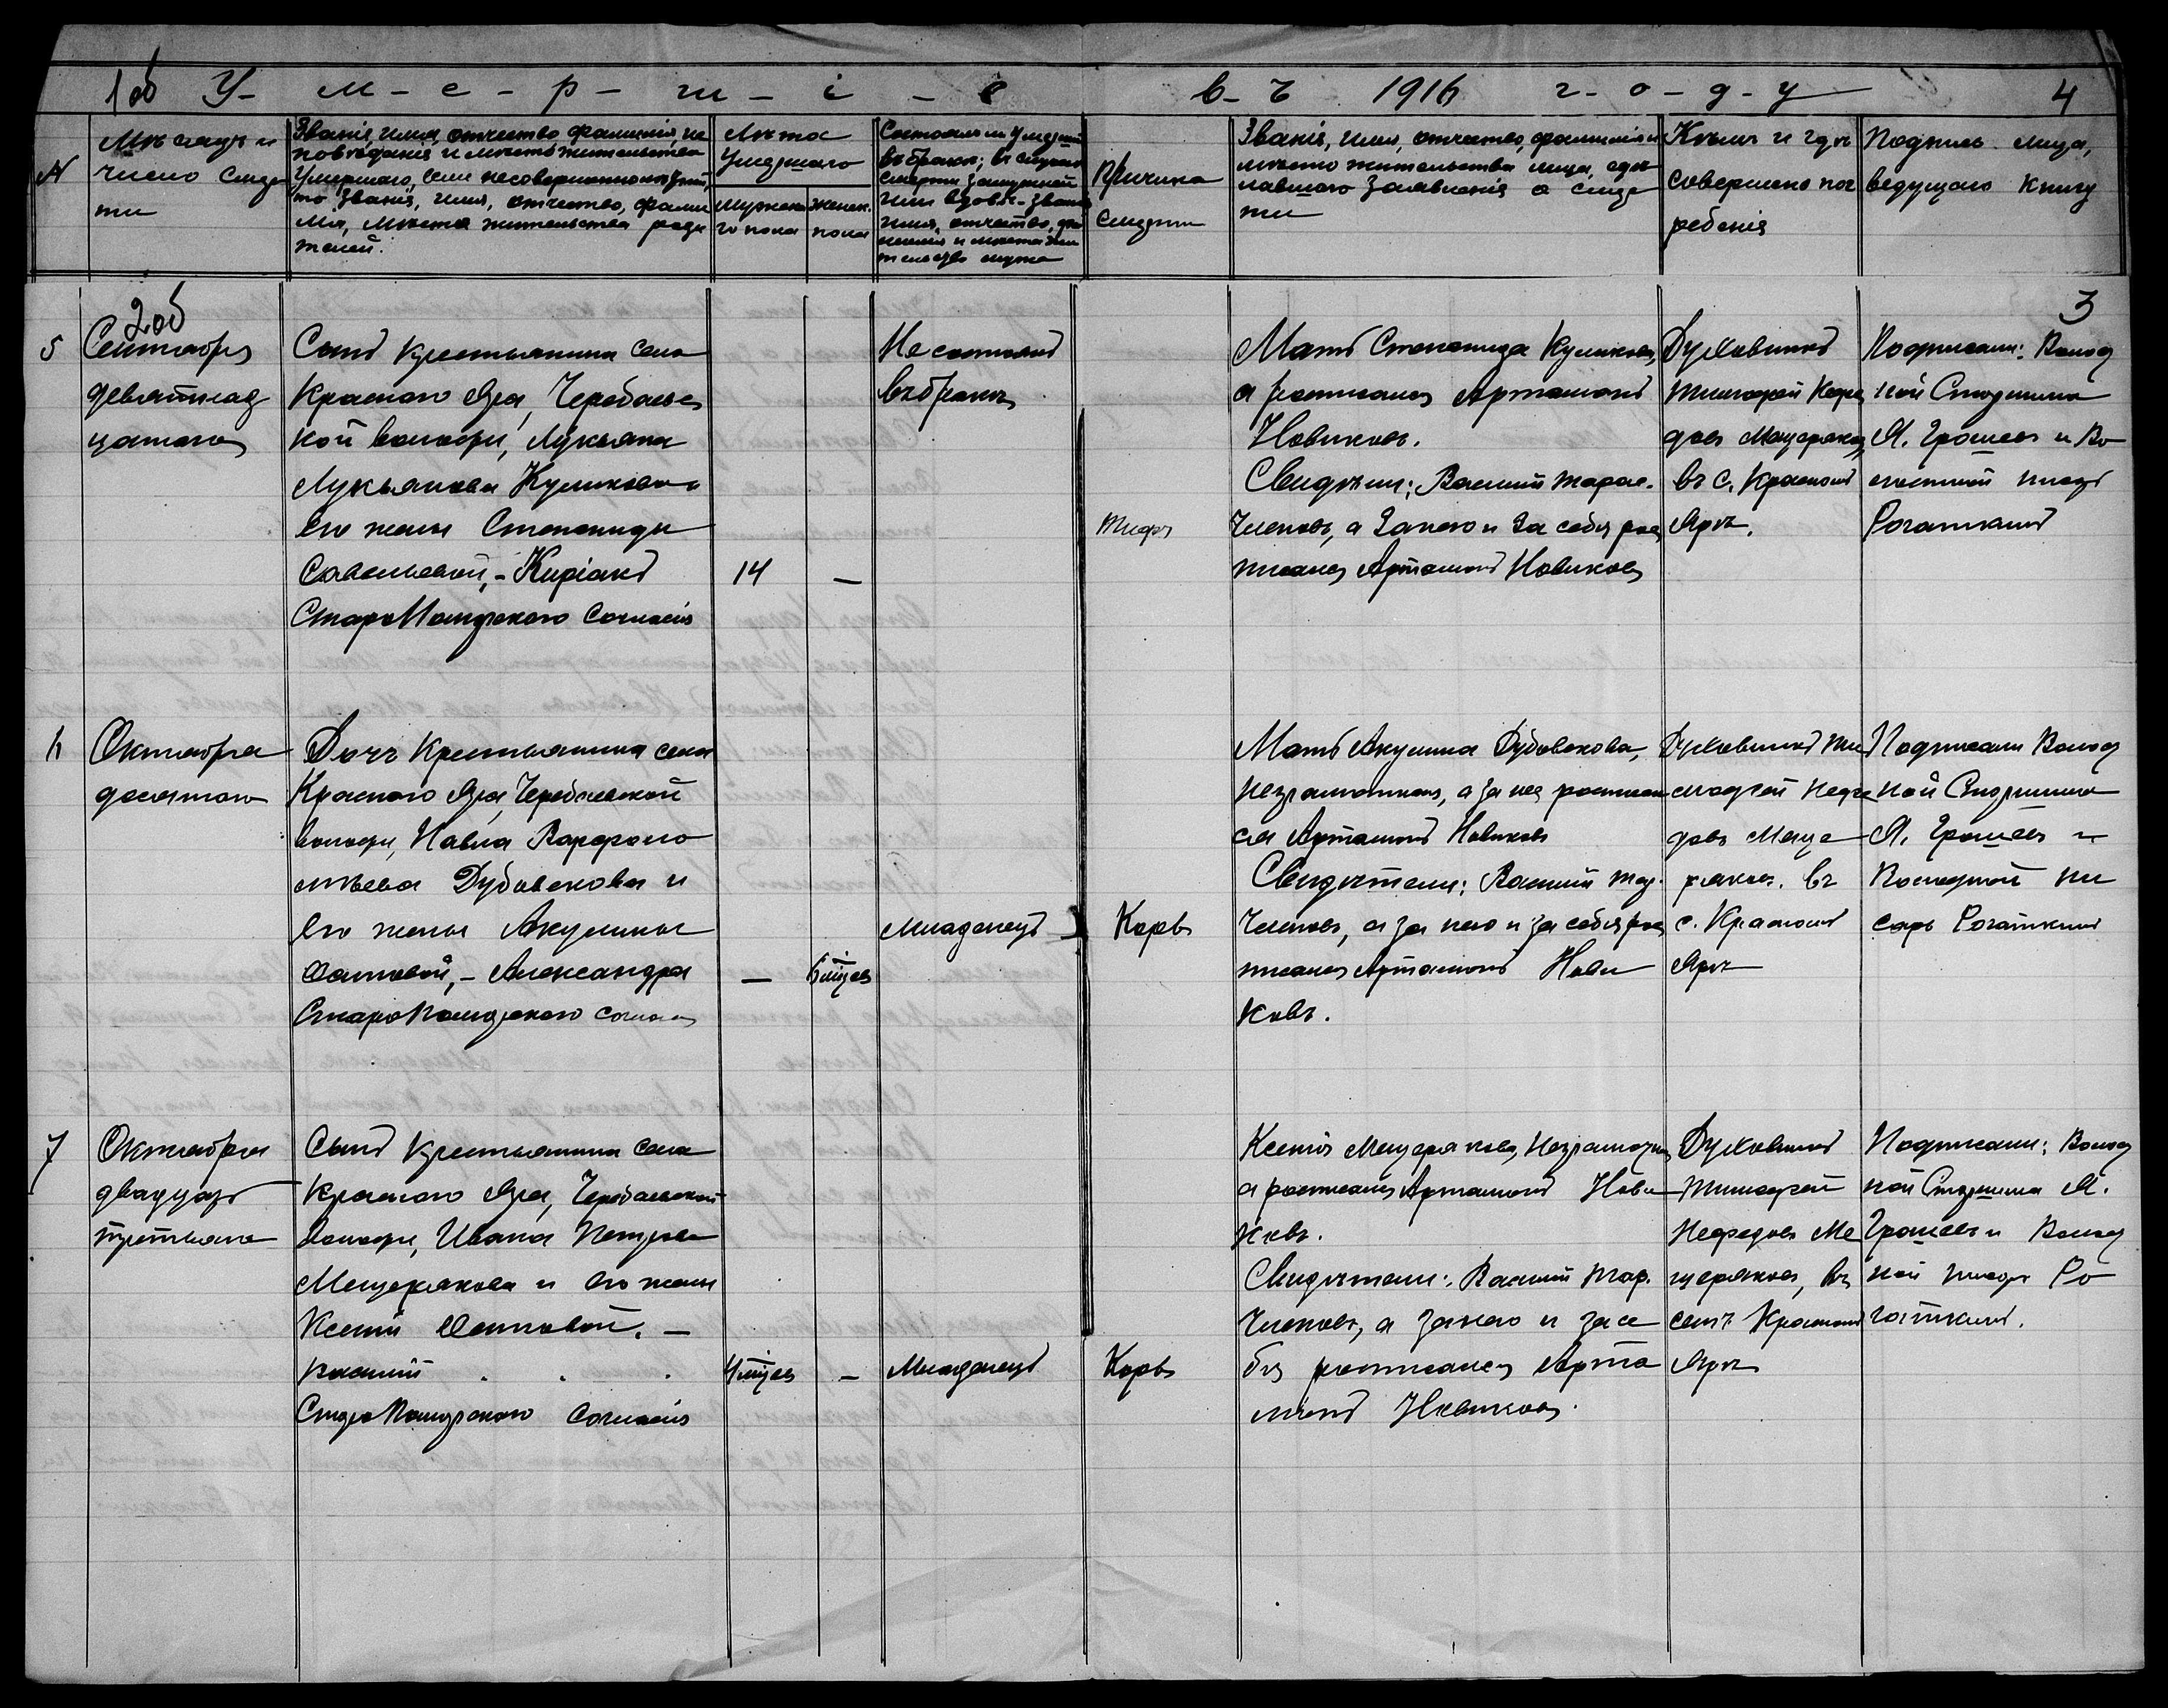 1об У-м-е-р-ш-і-е в-ъ 1916 г-о-д-у 4
N
Мѣсяцъ и
число смер
ти
Званіе, имя, отчество, фамилія, ис
повѣданіе и мѣсто жительства
Умершаго, если несовершеннолѣтній,
то званіе, имя, отчество, фами
лія, мѣсто жительства роди
телей.
Лѣта
Умершаго
мужска
го пола
женск.
пола
Состоялъ ли умершій
въ бракѣ; въ случаѣ
смерти замужней
или вдовы - званіе
имя, отчество, фа
милія и мѣсто жи
тельство мужа
Причина
смерти
Званіе, имя, отчество, фамилія и
мѣсто жительства лица, сдѣ
лавшаго заявленіе о смер
ти
Кѣмъ и гдѣ
совершено пог
ребеніе
Подпись лица,
ведущаго книгу
2об
3
5
Сентября
девятнад
цатаго
Сынъ крестьянина села
Краснаго Яра, Черебаевс
кой волости, Лукьяна
Лукьянова Куликова и
его жены Степаниды
Савельевой, - Киріакъ
СтароПоморского согласія
14
—
Не состоялъ
въ бракѣ
Тифъ
Мать Степанида Куликова,
а росписался Артамонъ
Новиковъ.
Свидѣтели: Василій Тарас.
Члековъ, а за него и за себя рос
писался Артамонъ Новиковъ
Духовникъ
Тимофей Нефе
довъ Мещеряковъ,
въ с. Красномъ
Ярѣ.
Подписали: Волост
ной Старшина
Я. Грошевъ и Во
лостной писарь
Рогаткинъ
6
Октября
десятаго
Дочь крестьянина села
Краснаго Яра, Черебаевской
волости, Павла Варфоло
мѣева Дубовскова и
его жены Акулины
Осиповой, - Александра
СтароПоморского согласія
—
6 мѣцев
Младенецъ
Корь
Мать Акулина Дубовскова,
неграмотная, а за нея росписал
ся Артамонъ Новиковъ
Свидѣтели: Василій Тар.
Члековъ, а за него и за себя рос
писался Артамонъ Нови
ковъ.
Духовникъ Ти
мофей Нефе
довъ Меще
ряковъ. въ
с. Красномъ
Ярѣ
Подписали Волост
ной Старшина
Я. Грошевъ и
Волостной пи
сарь Рогаткинъ
7
Октября
двадцать
третьяго
Сынъ крестьянина села
Краснаго Яра, Черебаевской
волости, Ивана Петрова
Мещерякова и его жены
Ксеніи Осиповой. —
Василій
СтароПоморского согласія
4 мѣцев
—
Младенецъ
Корь
Ксенія Мещерякова, неграмотная
а росписался Артамонъ Нови
ковъ.
Свидѣтели: Василій Тар.
Члековъ, а за него и за се
бя росписался Арта
монъ Новиковъ.
Духовникъ
Тимофей
Нефедовъ Ме
щеряковъ, въ
селѣ Красномъ
Ярѣ
Подписали: Волост
ной Старшина Я.
Грошевъ и Волост
ной писарь Ро
гаткинъ.